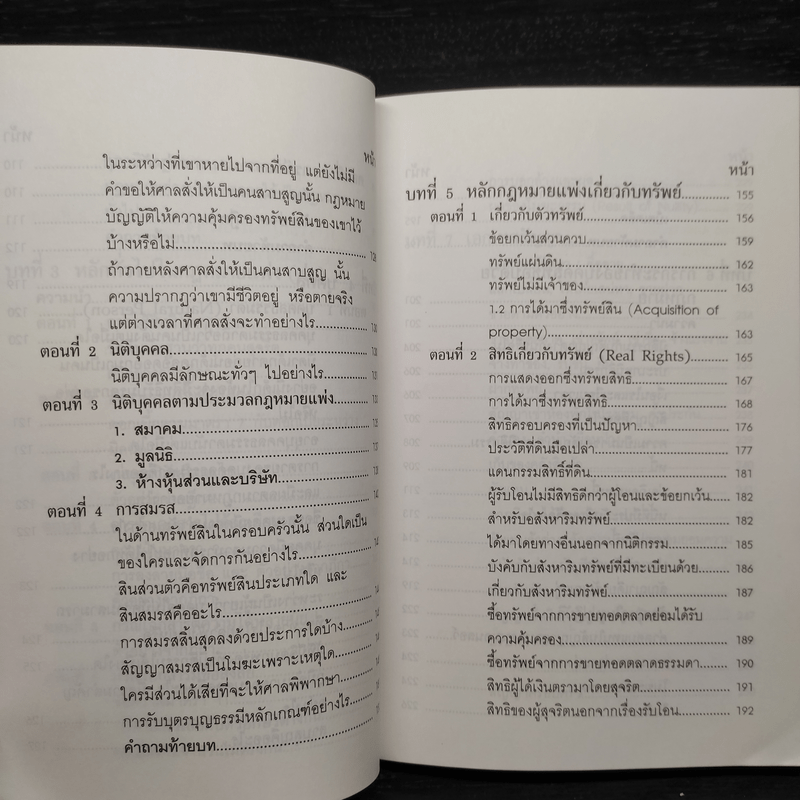 หน้า
ในระหว่างที่เขาหายไปจากที่อยู่ แต่ยังไม่มี
คำขอให้ศาลสั่งให้เป็นคนสาบสูญนั้น กฎหมาย
บัญญัติให้ความคุ้มครองทรัพย์สินของเขาไว้
บ้างหรือไม่
ถ้าภายหลังศาลสั่งให้เป็นคนสาบสูญ นั้น
ความปรากฏว่าเขามีชีวิตอยู่ หรือตายจริง
แต่ต่างเวลาที่ศาลสั่งจะทำอย่างไร
ตอนที่ 2 นิติบุคคล
นิติบุคคลมีลักษณะทั่วๆ ไปอย่างไร
ตอนที่ 3 นิติบุคคลตามประมวลกฎหมายแพ่ง
1. สมาคม
2. มูลนิธิ
3. ห้างหุ้นส่วนและบริษัท
ตอนที่ 4 การสมรส
ในด้านทรัพย์สินในครอบครัวนั้น ส่วนใดเป็น
ของใครและจัดการกันอย่างไร
สินส่วนตัวคือทรัพย์สินประเภทใด และ
สินสมรสคืออะไร
การสมรสสิ้นสุดลงด้วยประการใดบ้าง
สัญญาสมรสเป็นโมฆะเพราะเหตุใด
ใครมีส่วนได้เสียที่จะให้ศาลพิพากษา
การรับบุตรบุญธรรมมีหลักเกณฑ์อย่างไร
คำถามท้ายบท
หน้า
บทที่ 5 หลักกฎหมายแพ่งเกี่ยวกับทรัพย์ 155
ตอนที่ 1 เกี่ยวกับตัวทรัพย์ 156
ข้อยกเว้นส่วนควบ 159
ทรัพย์แผ่นดิน 162
ทรัพย์ไม่มีเจ้าของ 163
1.2 การได้มาซึ่งทรัพย์สิน (Acquisition of
property) 163
ตอนที่ 2 สิทธิเกี่ยวกับทรัพย์ (Real Rights) 165
การแสดงออกซึ่งทรัพยสิทธิ 167
การได้มาซึ่งทรัพยสิทธิ 168
สิทธิครอบครองที่เป็นปัญหา 176
ประวัติที่ดินมือเปล่า 177
แดนกรรมสิทธิ์ที่ดิน 181
ผู้รับโอนไม่มีสิทธิดีกว่าผู้โอนและข้อยกเว้น 182
สำหรับอสังหาริมทรัพย์ 182
ได้มาโดยทางอื่นนอกจากนิติกรรม 185
บังคับกับสังหาริมทรัพย์ที่มีทะเบียนด้วย 186
เกี่ยวกับสังหาริมทรัพย์ 187
ซื้อทรัพย์จากการขายทอดตลาดย่อมได้รับ
ความคุ้มครอง 189
ซื้อทรัพย์จากการขายทอดตลาดธรรมดา 190
สิทธิผู้ได้เงินตรามาโดยสุจริต 191
สิทธิของผู้สุจริตนอกจากเรื่องรับโอน 192